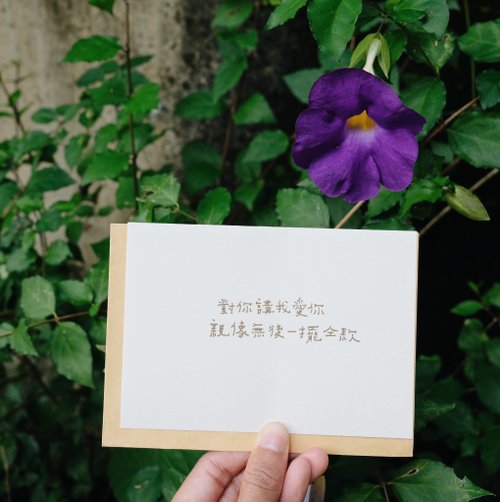 對你講我愛你
親像無獎一擺仝款